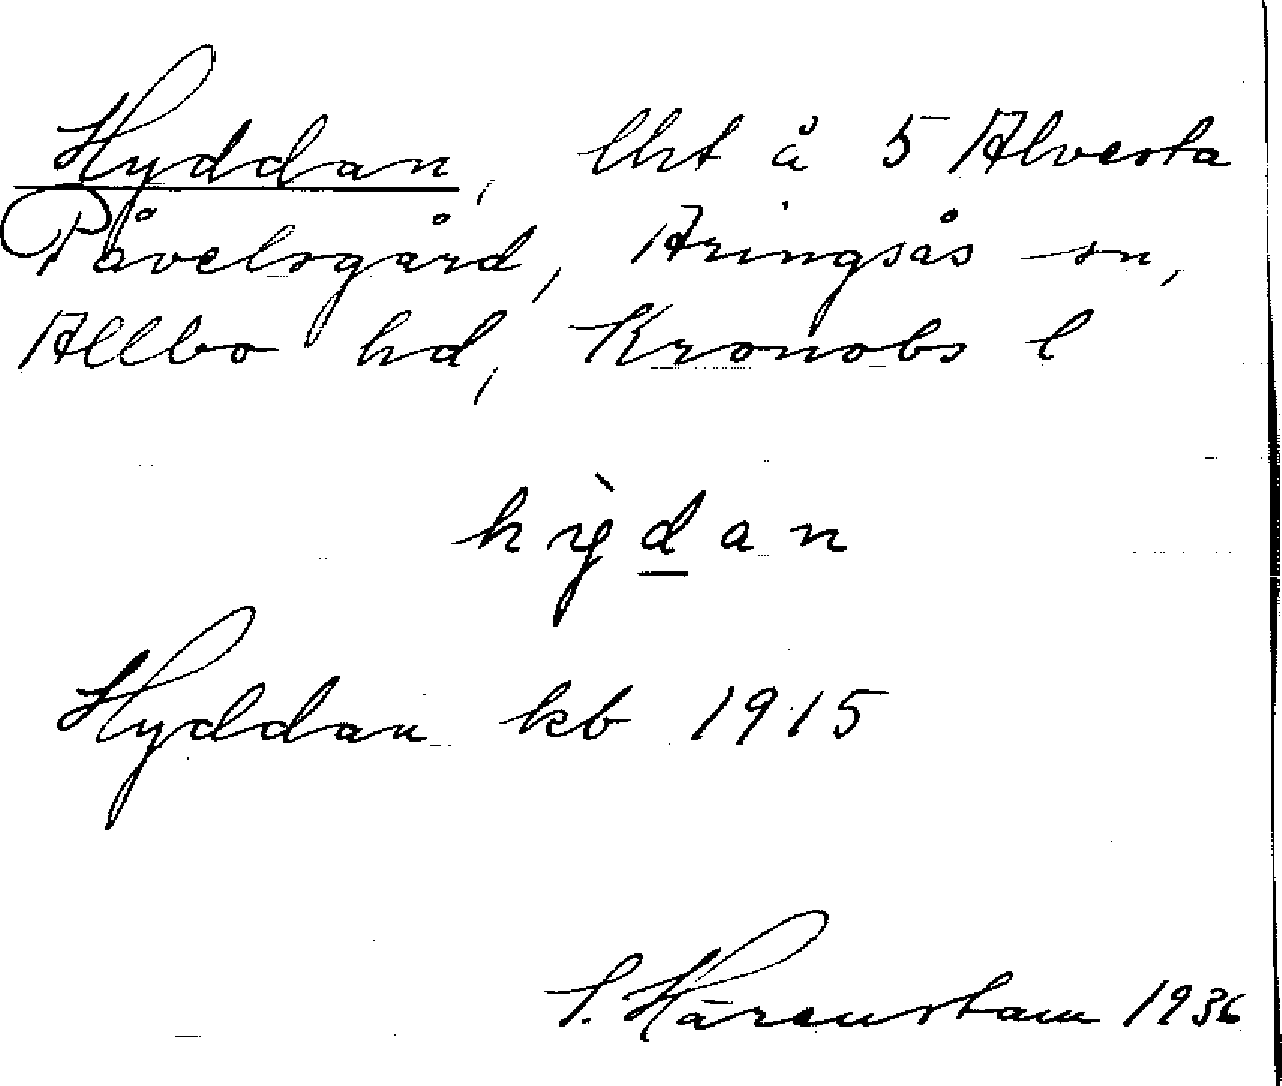 Hyddan, lht å 5 Alvesta
Påvelsgård, Aringsås sn,
Allbo hd, Kronobs l
hỳdan
Hyddan kb 1915
S. Härenstam 1936